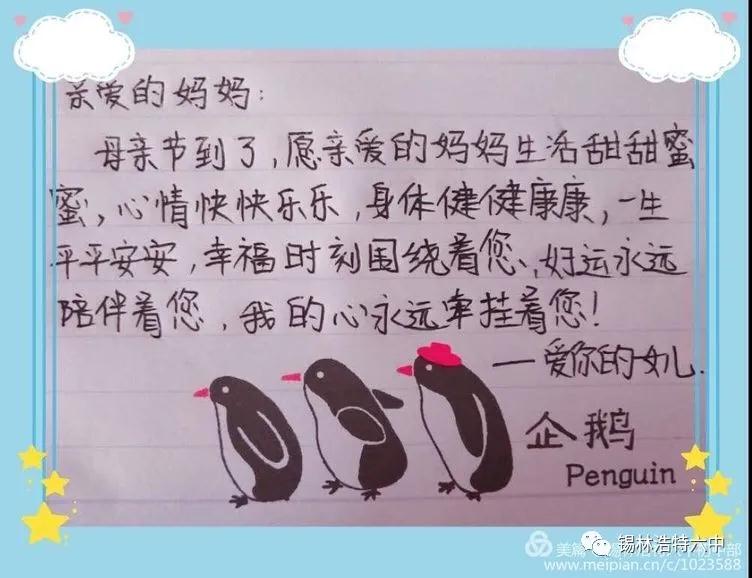 亲爱的妈妈:
母亲节到了,愿亲爱的妈妈生活甜甜蜜
蜜,心情快快乐乐,身体健健康康,一生
平平安安,幸福时刻围绕着您、好运永远
陪伴着您,我的心永远牵挂着您!
——爱你的女儿.
企鹅
Penguin
锡林浩特六中
美篇
初中部
www.meipian.cn/c/1023588